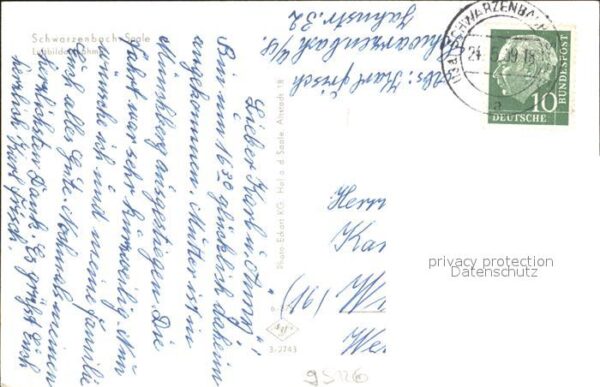 Schwarzenbach Saale
Luftbildaufnahme
Lieber Karl u. Anny!
Bin um 16 30 glücklich daheim
angekommen. Mutter ist in
Münchberg ausgestiegen. Die
Fahrt war sehr kurzweilig. Nun
wünsche ich und meine Familie
Euch alles Gute. Nochmals meinen
herzlichsten Dank. Es grüßt Euch
herzlich Karl Frisch.
Abs: Karl Frisch
Schwarzenbach a/S.
Jahnstr. 32
Photo Eckart KG. Hof a. d. Saale, Altstadt 18
Agfa
3-2743
SCHWARZENBA
10
DEUTSCHE
BUNDESPOST
Herrn
Kar
We
privacy protection
Datenschutz
95126